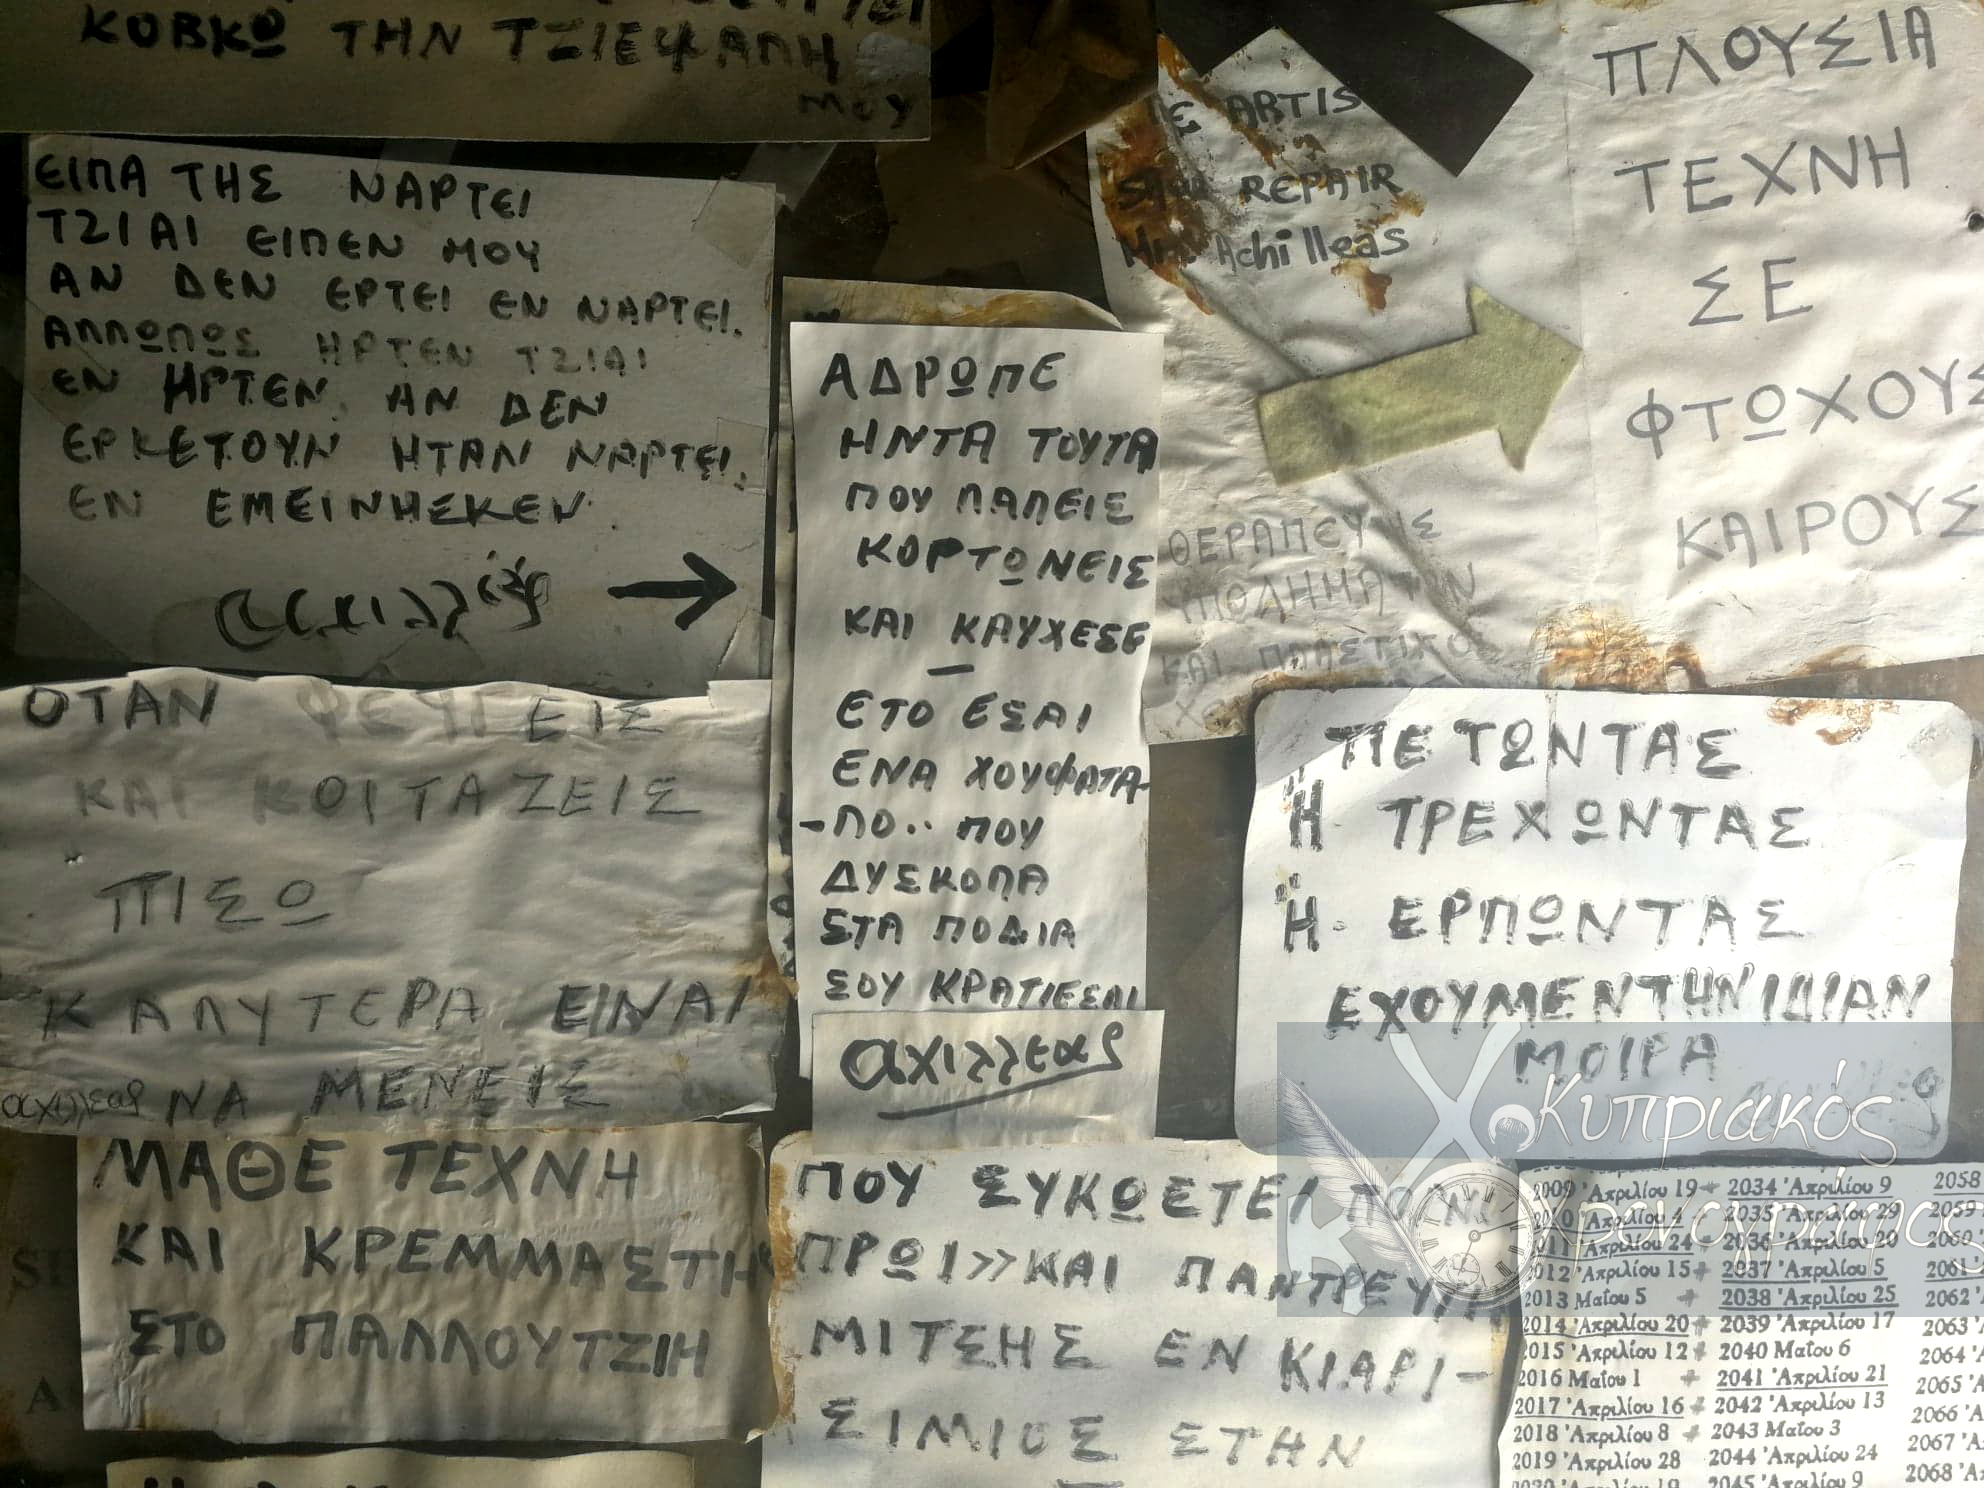 ΚΟΒΚΩ ΤΗΝ ΤΖΙΕΦΑΛΗ
ΜΟΥ
ΕΙΠΑ ΤΗΣ ΝΑΡΤΕΙ
ΤΖΙΑΙ ΕΙΠΕΝ ΜΟΥ
ΑΝ ΔΕΝ ΕΡΤΕΙ ΕΝ ΝΑΡΤΕΙ.
ΑΛΛΩΠΩΣ ΗΡΤΕΝ ΤΖΙΑΙ
ΕΝ ΗΡΤΕΝ. ΑΝ ΔΕΝ
ΕΡΚΕΤΟΥΝ ΗΤΑΝ ΝΑΡΤΕΙ.
ΕΝ ΕΜΕΙΝΗΣΚΕΝ.
ΟΤΑΝ ΦΕΥΓΕΙΣ
ΚΑΙ ΚΟΙΤΑΖΕΙΣ
ΠΙΣΩ
ΚΑΛΥΤΕΡΑ ΕΙΝΑΙ
αχιλλεας ΝΑ ΜΕΝΕΙΣ
ΜΑΘΕ ΤΕΧΝΗ
ΚΑΙ ΚΡΕΜΜΑΣΤΗ
ΣΤΟ ΠΑΛΛΟΥΤΖΙΗ
ΑΔΡΩΠΕ
ΗΝΤΑ ΤΟΥΤΑ
ΠΟΥ ΛΑΛΕΙΣ
ΚΟΡΤΩΝΕΙΣ
ΚΑΙ ΚΑΥΧΕΣΕ
–
ΕΤΟ ΕΣΑΙ
ΕΝΑ ΧΟΥΦΑΤΑ-
-ΠΟ.. ΠΟΥ
ΔΥΣΚΟΛΑ
ΣΤΑ ΠΟΔΙΑ
ΣΟΥ ΚΡΑΤΙΕΣΑΙ
αχιλλεας
ΠΟΥ ΣΥΚΩΣΤΕΙ ΠΟΛΛΗ
ΠΡΩΙ>>ΚΑΙ ΠΑΝΤΡΕΥΤΗ
ΜΙΤΣΗΣ ΕΝ ΚΙΑΡΙ-
ΣΙΜΙΟΣ ΣΤΗΝ
ARTIS
REPAIR
Achilleas
ΘΕΡΑΠΕΥΤΗΣ
ΥΠΟΔΗΜΑΤΩΝ
ΚΑΙ ΠΛΑΣΤΙΚΟ
ΠΛΟΥΣΙΑ
ΤΕΧΝΗ
ΣΕ
ΦΤΩΧΟΥΣ
ΚΑΙΡΟΥΣ
ΠΕΤΩΝΤΑΣ
Ή ΤΡΕΧΩΝΤΑΣ
Ή. ΕΡΠΩΝΤΑΣ
ΕΧΟΥΜΕΝ ΤΗΝ ΙΔΙΑΝ
ΜΟΙΡΑ
Κυπριακός
Χρονογράφος
2009 Ἀπριλίου 19 2034 Ἀπριλίου 9 2058
2010 Ἀπριλίου 4 2035 Ἀπριλίου 29 2059
2011 Ἀπριλίου 24 2036 Ἀπριλίου 20 2060
2012 Ἀπριλίου 15 2037 Ἀπριλίου 5 2061
2013 Μαΐου 5 2038 Ἀπριλίου 25 2062
2014 Ἀπριλίου 20 2039 Ἀπριλίου 17 2063
2015 Ἀπριλίου 12 2040 Μαΐου 6 2064
2016 Μαΐου 1 2041 Ἀπριλίου 21 2065
2017 Ἀπριλίου 16 2042 Ἀπριλίου 13 2066
2018 Ἀπριλίου 8 2043 Μαΐου 3 2067
2019 Ἀπριλίου 28 2044 Ἀπριλίου 24 2068
2045 Ἀπριλίου 9